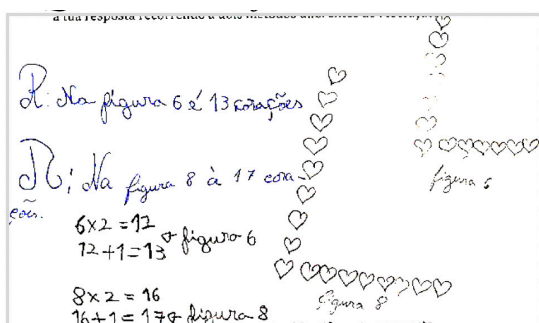 a tua resposta recorrendo a dois métodos diferentes de
R: Na figura 6 é 13 corações
R: Na figura 8 à 17 cora-
ções.
6x2 = 12
12+1=13 → figura 6
8x2 = 16
16+1=17→ figura 8
figura 6
figura 8